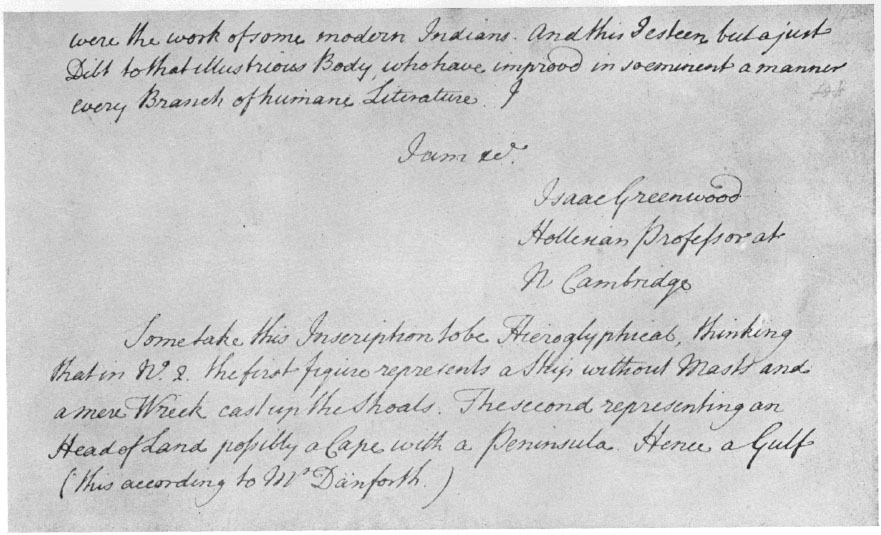 were the work of some modern Indians. And this I esteem but a just
Dibt to that illustrious Body, who have improvd in so eminent a manner
every Branch of humane Literature. I
I am &c.
Isaac Greenwood
Hollisian Professor at
N Cambridge
Some take this Inscription to be Hieroglyphical, thinking
that in No. 2. the first figure represents a Ship without Masts and
a mere Wreck cast up the Shoals. The second representing an
Head of Land possibly a Cape with a Peninsula. Hence a Gulf
(this according to Mr Danforth.)